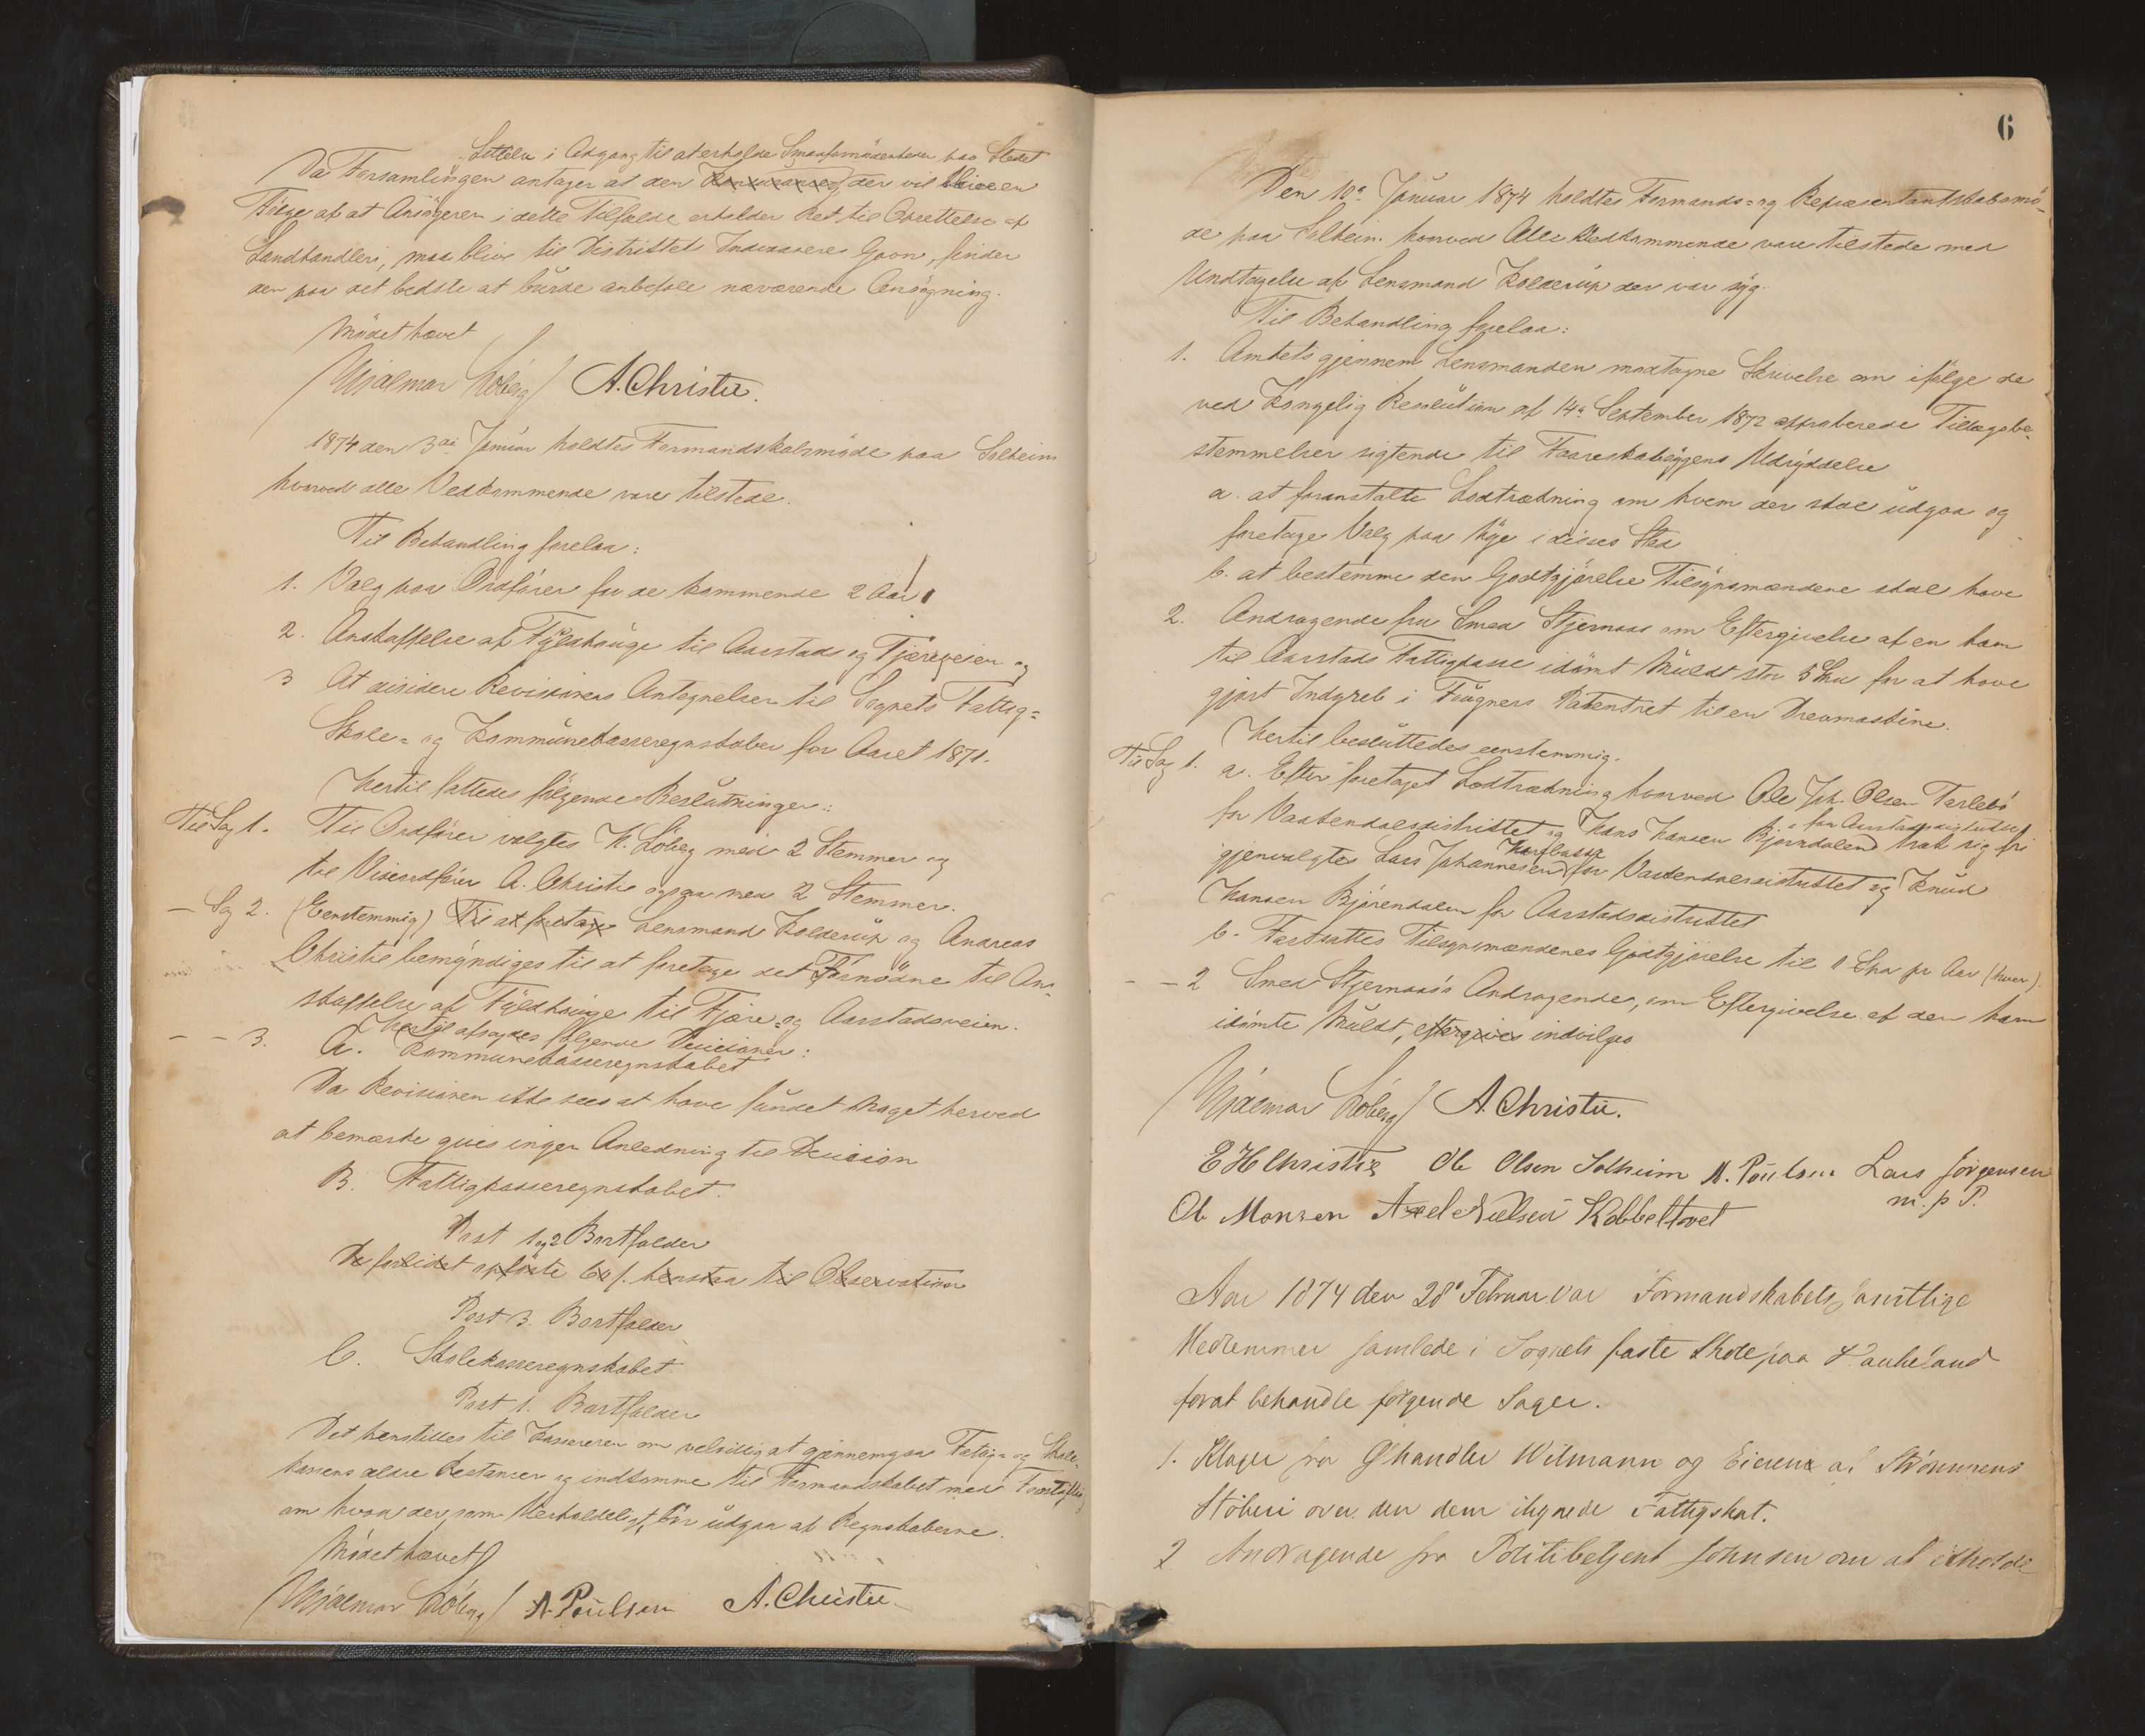 Lettelse i Adgang til at erholde Smaafornødenheder paa Stedet
Da Forsamlingen antager at den der vil blive en
Følge af at Ansøgeren i dette Tilfælde erholder Ret til Oprettelse af
Landhandleri, maa blive til Distriktets Indvaanere Gavn, finder
den paa det bedste at burde anbefale nærværende Ansøgning.
Mødet hævet
Hjalmar Løberg A. Christie.
1874 den 3die Januar holdtes Formandskabsmøde paa Solheim
hvorved alle Vedkommende vare tilstede.
Til Behandling forelaa:
1. Valg paa Ordfører for de kommende 2 Aar
2. Anskaffelse af Fyldhauge til Aarstads og Fjæreveien og
3 At decidere Revisionens Antegnelser til Sognets Fattig=
Skole= og Kommunekasseregnskaber for Aaret 1871.
Hertil fattedes følgende Beslutninger:
Til Sag 1. Til Ordfører valgtes H. Løberg med 2 Stemmer og
til Viceordfører A. Christie ogsaa med 2 Stemmer.
— Sag 2. (Eenstemmig) Til at foretage Lensmand Kolderup og Andreas
Christie bemyndiges til at foretage det Fornødne til An-
skaffelse af Fyldhauge til Fjære= og Aarstadsveien.
Hertil afsagdes følgende Decisioner:
— — 3. A. Kommunekasseregnskabet
Da Revisionen ikke sees at have fundet Noget herved
at bemærke gives ingen Anledning til Decision
B. Fattigkasseregnskabet.
Post 1 og 2 Bortfalder
De forlidet opførte 60 f. henstaa til Observation
Post 3. Bortfalder
C. Skolekasseregnskabet
Post 1. Bortfalder
Det henstilles til Kassereren om velvilligst at gjennemgaa Fattig= og Skole-
kassens ældre Restancer og indkomme til Formandskabet med
om hvad der, som Uerholdeligt, bør udgaa af Regnskaberne.
Mødet hævet
Hjalmar Løberg N. Poulsen A. Christie
6
Den 10de Januar 1874 holdtes Formands= og Repræsentantskabsmø-
de paa Solheim hvorved Alle Vedkommende vare tilstede med
Undtagelse af Lensmand Kolderup der var syg.
Til Behandling forelaa:
1. Amtets gjennem Lensmanden modtagne Skrivelse om ifølge de
ved Kongelig Resolution af 14de September 1872 approberede Tillægsbe-
stemmelser sigtende til Faareskabsygens Udryddelse
a. at foranstalte Lodtrækning om hvem der skal udgaa og
foretage Valg paa Nye i disses Sted
b. at bestemme den Godtgjørelse Tilsynsmændene skal have
2. Andragende fra Smed Stjernaas om Eftergivelse af en ham
til Aarstads Fattigkasse idømt Muldt stor 5 Spd for at have
gjort Indgreb i Faugners Patentret til en Drevmaskine.
Hertil besluttedes eenstemmig.
Til Sag 1. a. Efter foretaget Lodtrækning hvorved Ole Joh. Olsen Tarlebø
for Vaatendalsdistriktet og Hans Hansen Bjørndalen for Aarstadsdistriktet trak sig fri
gjenvalgtes Lars Johannesen for Vaatendalsdistriktet og Knud
Hansen Bjørndalen for Aarstadsdistriktet
b. Fastsattes Tilsynsmændenes Godtgjørelse til 1 Spd pr Aar (hver).
— — 2 Smed Stjernaas's Andragende, om Eftergivelse af den ham
idømte Muldt, eftergives indvilges
Hjalmar Løberg A. Christie.
E H Christie Ole Olsen Solheim N. Poulsen Lars Jørgensen
m. p P.
Ole Monsen Axel Nielsen Kobbeltvet
Aar 1874 den 28de Februar var Formandskabets samtlige
Medlemmer samlede i Sognets faste Skole paa Haukeland
forat behandle følgende Sager.
1. Klager fra Ølhandler Wilmann og Eierene af Strømmens
Støberi over den dem ilignede Fattigskat.
2 Andragende fra Politibetjent Johnsen om at erholde